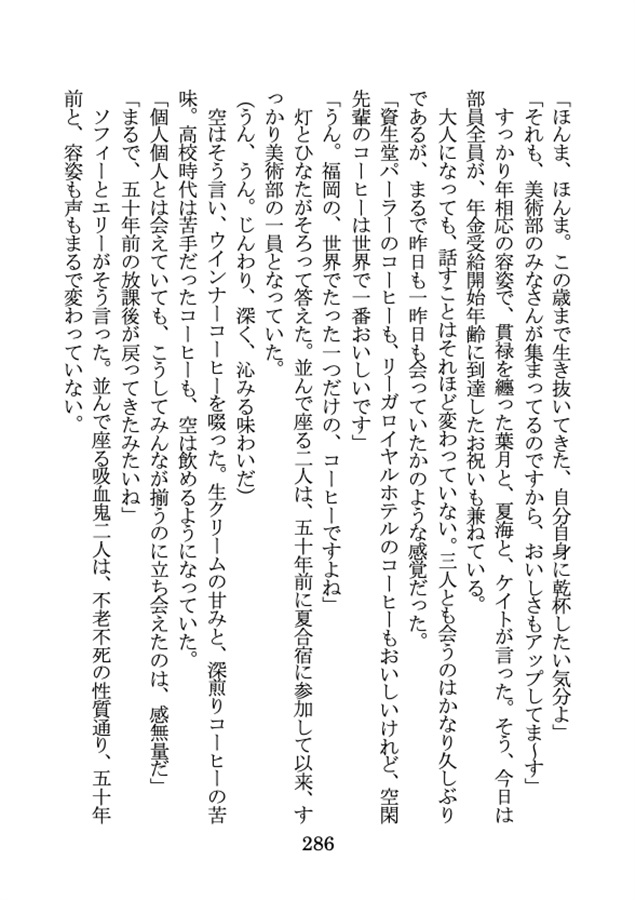 「ほんま、ほんま。この歳まで生き抜いてきた、自分自身に乾杯したい気分よ」
「それも、美術部のみなさんが集まってるのですから、おいしさもアップしてま〜す」
すっかり年相応の容姿で、貫禄を纏った葉月と、夏海と、ケイトが言った。そう、今日は
部員全員が、年金受給開始年齢に到達したお祝いも兼ねている。
大人になっても、話すことはそれほど変わっていない。三人とも会うのはかなり久しぶり
であるが、まるで昨日も一昨日も会っていたかのような感覚だった。
「資生堂パーラーのコーヒーも、リーガロイヤルホテルのコーヒーもおいしいけれど、空閑
先輩のコーヒーは世界で一番おいしいです」
「うん。福岡の、世界でたった一つだけの、コーヒーですよね」
灯とひなたがそろって答えた。並んで座る二人は、五十年前に夏合宿に参加して以来、す
っかり美術部の一員となっていた。
(うん、うん。じんわり、深く、沁みる味わいだ)
空はそう言い、ウインナーコーヒーを啜った。生クリームの甘みと、深煎りコーヒーの苦
味。高校時代は苦手だったコーヒーも、空は飲めるようになっていた。
「個人個人とは会えていても、こうしてみんなが揃うのに立ち会えたのは、感無量だ」
「まるで、五十年前の放課後が戻ってきたみたいね」
ソフィーとエリーがそう言った。並んで座る吸血鬼二人は、不老不死の性質通り、五十年
前と、容姿も声もまるで変わっていない。
286